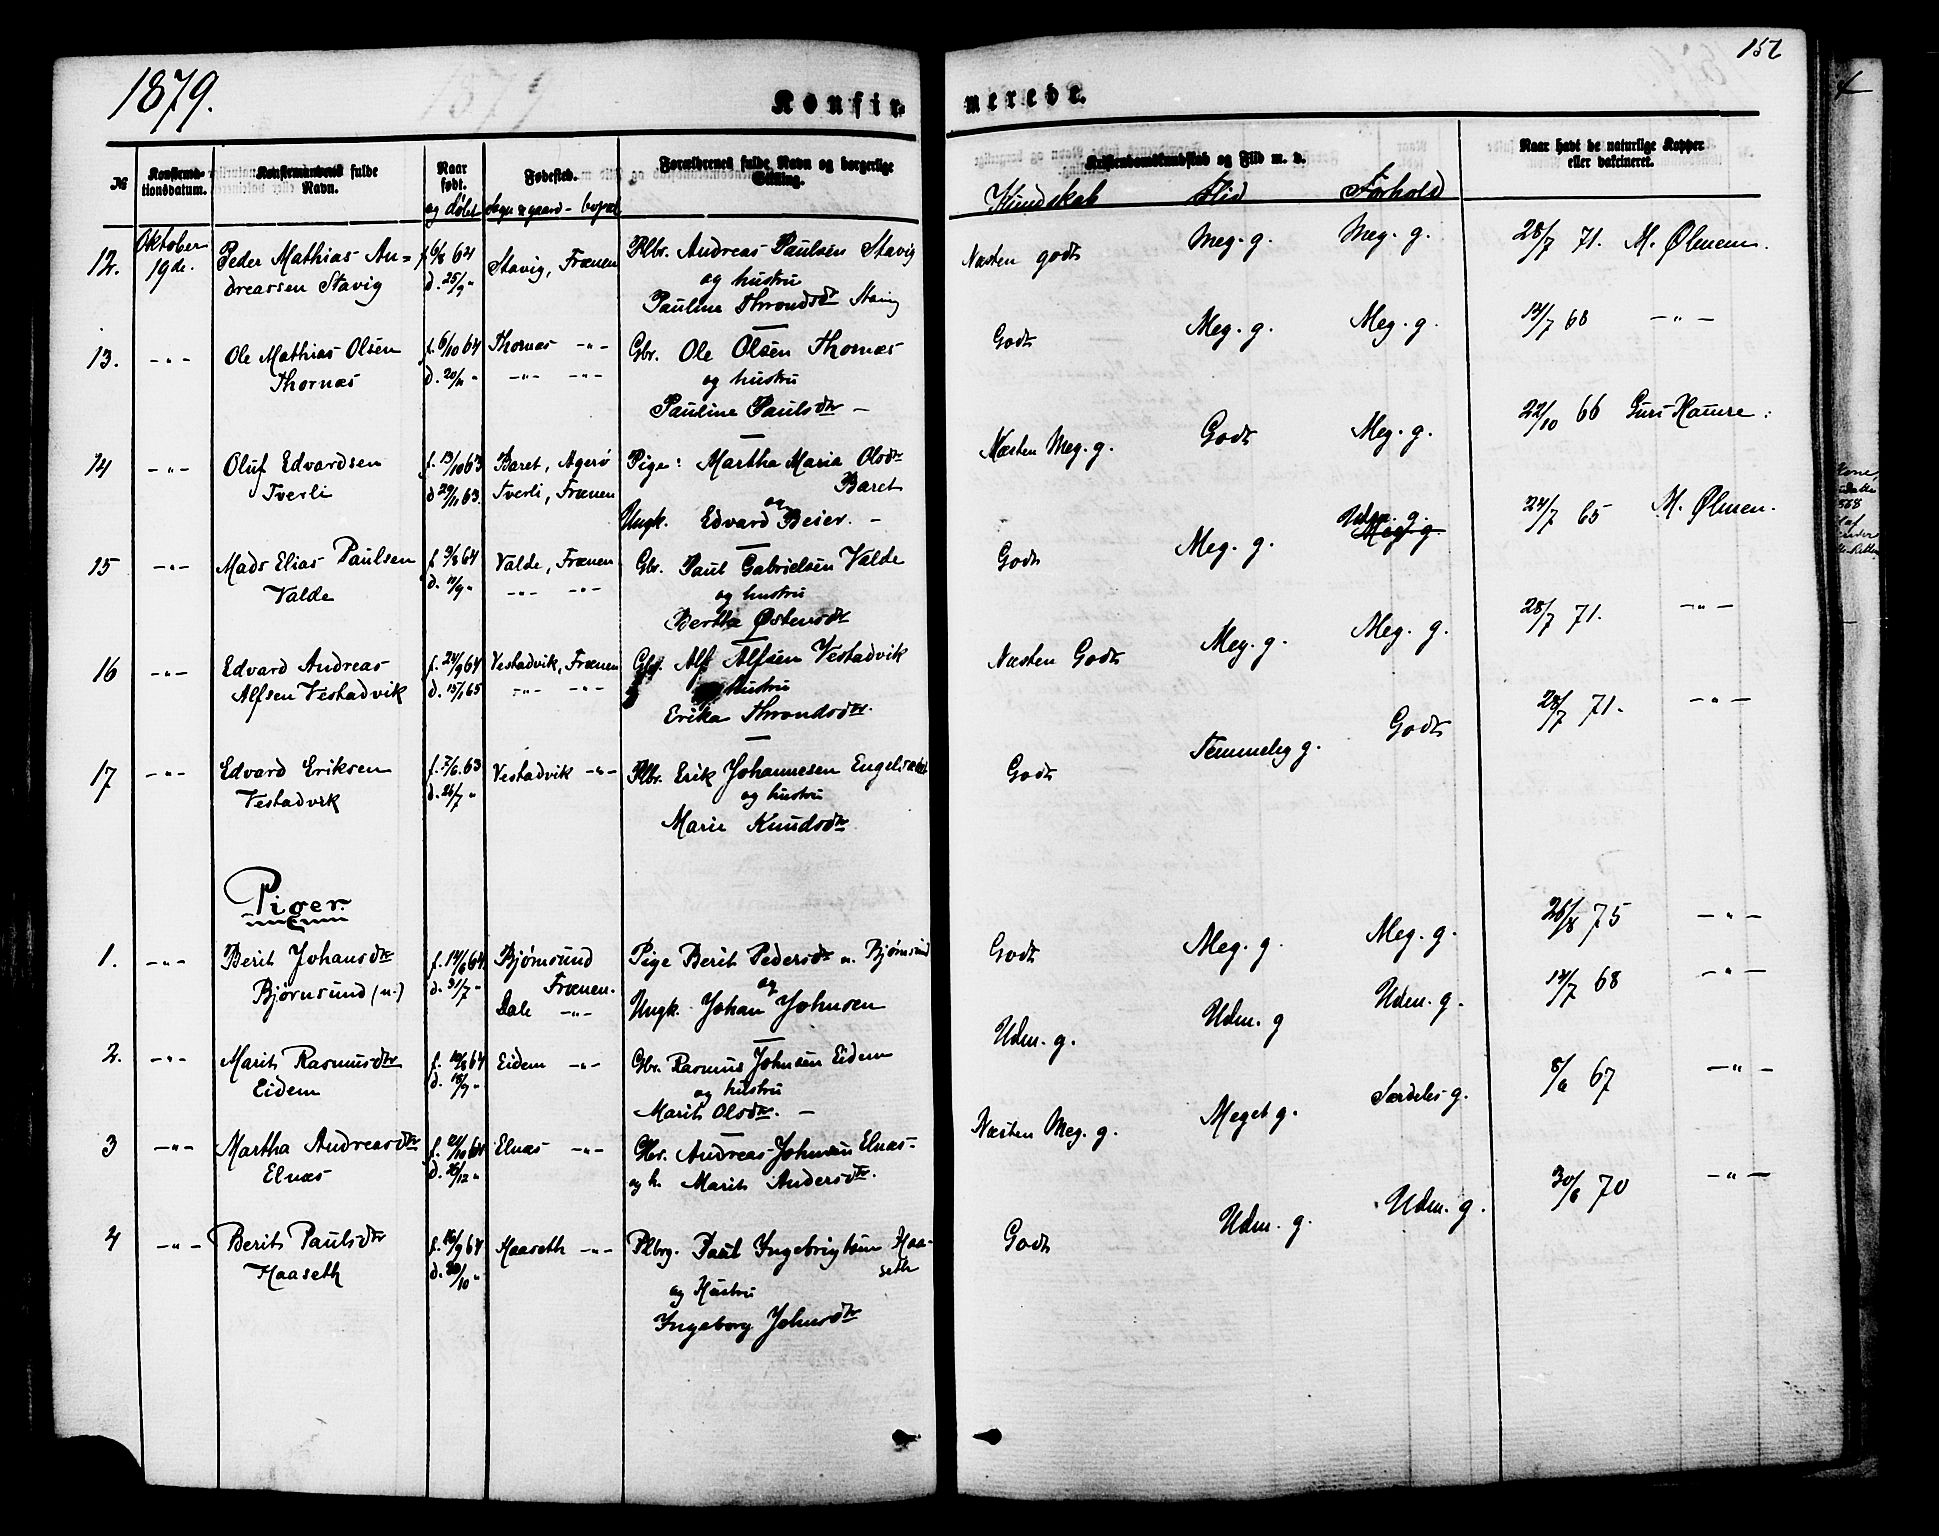 1879.
152
Konfir-
merede.
№
Konfirma-
tionsdatum.
Konfirmandens fulde
Navn.
Naar
født.
og døbt
Fødested.
Sogn & gaard - bopæl
Forældrenes fulde Navn og borgerlige
Stilling.
Kristendomskundskab og Flid m. v.
Kundskab Flid Forhold
Naar havt de naturlige Kopper
eller vakcineret.
12. Oktober
19de.
Peder Mathias An-
dreassen Stavig
f. 6/8 64
d. 25/9 "
Stavig, Frænen
Plbr. Andreas Paulsen Stavig
og hustru
Pauline Throndsdtr Stavig
Næsten godt Meg. g. Meg. g. 28/7 71. M. Ølmem.
13. -"- Ole Mathias Olsen
Thornæs
f. 6/10 64
d. 20/11 "
Thornæs -"-
-"- -"-
Gbr. Ole Olsen Thornæs
og hustru
Pauline Paulsdtr -
Godt Meg. g. Meg. g. 14/7 68 -"-
14 -"- Oluf Edvardsen
Tverli
f. 13/10 63
d. 29/11 63.
Baret, Agerø
Tverli, Frænen
Pige: Martha Maria Olsdtr
Baret
og
Ungk. Edvard Beier. -
Næsten Meg. g. Godt Meg. g. 22/10 66 Guri Haure:
15 -"- Mads Elias Paulsen
Valde
f. 9/8 64
d. 11/9 "
Valde, Frænen
-"- -"-
Gbr. Paul Gabrielsen Valde
og hustru
Bertha Østensdtr
Godt Meg. g. Udm. g.
Meg. g 24/7 65 M. Ølmen.
16 -"- Edvard Andreas
Alfsen Vestadvik
f. 24/9 64
d. 15/1 65
Vestadvik, Frænen
-"- -"-
Gbr. Alf Alfsen Vestadvik
hustru
Erika Throndsdtr.
Næsten Godt Meg. g. Meg. g. 28/7 71. -"-
17 -"- Edvard Eriksen
Vestadvik
f. 7/6. 63
d. 26/7 "
Vestadvik -"-
Plbr. Erik Johannesen
og hustru
Marie Knudsdtr.
Godt Temmelig g. Godt 28/7 71. -"-
Piger.
1. -"- Berit Johansdtr
Bjørnsund (u.)
f. 14/6 64.
d. 31/7 "
Bjørnsund
Frænen.
Dale -"-
Pige Berit Pedersdtr u. Bjørnsund
og
Ungk. Johan Johnsen
Godt Meg. g. Meg. g. 26/8 75 -"-
2. -"- Marit Rasmusdtr
Eidem
f. 19/8 64
d. 18/9 "
Eidem -"-
Gbr. Rasmus Johnsen Eidem
og hustru
Marit Olsdtr. -
Udm. g. Udm. g Udm. g. 14/7 68 -"-
3 -"- Martha Andreasdtr
Elnæs
f. 21/10 64
d. 26/12 "
Elnæs -"-
Gbr. Andreas Johnsen Elnæs-
og h. Marit Andersdtr.
Næsten Meg. g. Meget g. Særdeles g. 8/6 67 -"-
4 -"- Berit Paulsdtr
Haaseth
f. 16/9 64
d. 30/10 "
Haaseth -"-
Plbrg. Paul Ingebrigtsen Haa-
seth
og Hustru
Ingeborg Johnsdtr
Godt Udm. g. Udm. g. 30/6 70 -"-